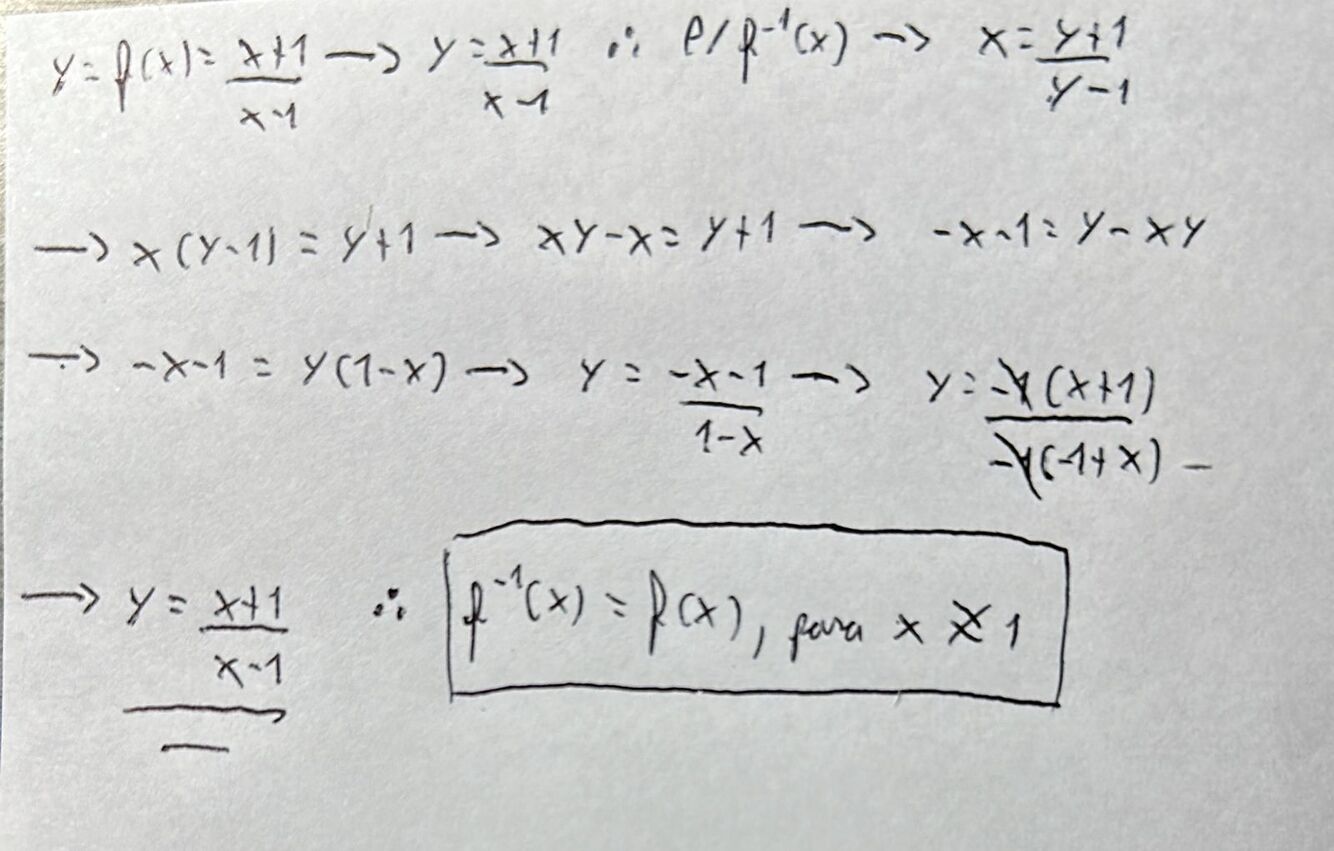 y = f(x) = \frac{x+1}{x-1} → y = \frac{x+1}{x-1} ∴ P/ f⁻¹(x) → x = \frac{y+1}{y-1}
→ x(y-1) = y+1 → xy-x = y+1 → -x-1 = y-xy
→ -x-1 = y(1-x) → y = \frac{-x-1}{1-x} → y = \frac{-1(x+1)}{-1(-1+x)} -
→ y = \frac{x+1}{x-1} ∴ f⁻¹(x) = f(x), para x ≠ 1